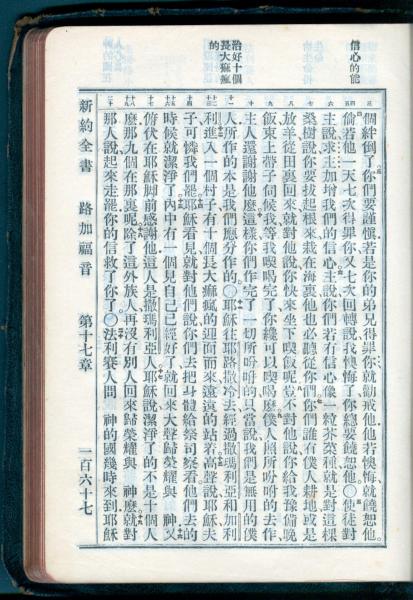 信心的能
治好十個
長大痲瘋
的
個絆倒了你們要謹愼若是你的弟兄得罪你就勸戒他他若懊悔就饒恕他
倘若他一天七次得罪你又七次回轉說我懊悔了你總要饒恕他〇使徒對
主說求主加增我們的信心主說你們若有信心像一粒芥菜種就是對這棵
桑樹說你要拔起根來栽在海裏他也必聽從你們你們誰有僕人耕地或是
放羊從田裏回來就對他說你快來坐下喫飯呢豈不對他說你給我豫備晚
飯束上帶子伺候我等我喫喝完了你纔可以喫喝麼僕人照所吩咐的去作
主人還謝謝他麼這樣你們作完了一切所吩咐的只當說我們是無用的僕
人所作的本是我們應分作的〇耶穌往耶路撒冷去經過撒瑪利亞和加利
利進入一個村子有十個長大痲瘋的迎面而來遠遠的站着高聲說耶穌夫
子可憐我們罷耶穌看見就對他們說你們去把身體給祭司察看他們去的
時候就潔淨了內中有一個見自己已經好了就回來大聲歸榮耀與　神又
俯伏在耶穌脚前感謝他這人是撒瑪利亞人耶穌說潔淨了的不是十個人
麼那九個在那裏呢除了這外族人再沒有別人回來歸榮耀與　神麼就對
那人說起來走罷你的信救了你了〇法利賽人問　神的國幾時來到耶穌
新約全書　路加福音　第十七章　一百六十七